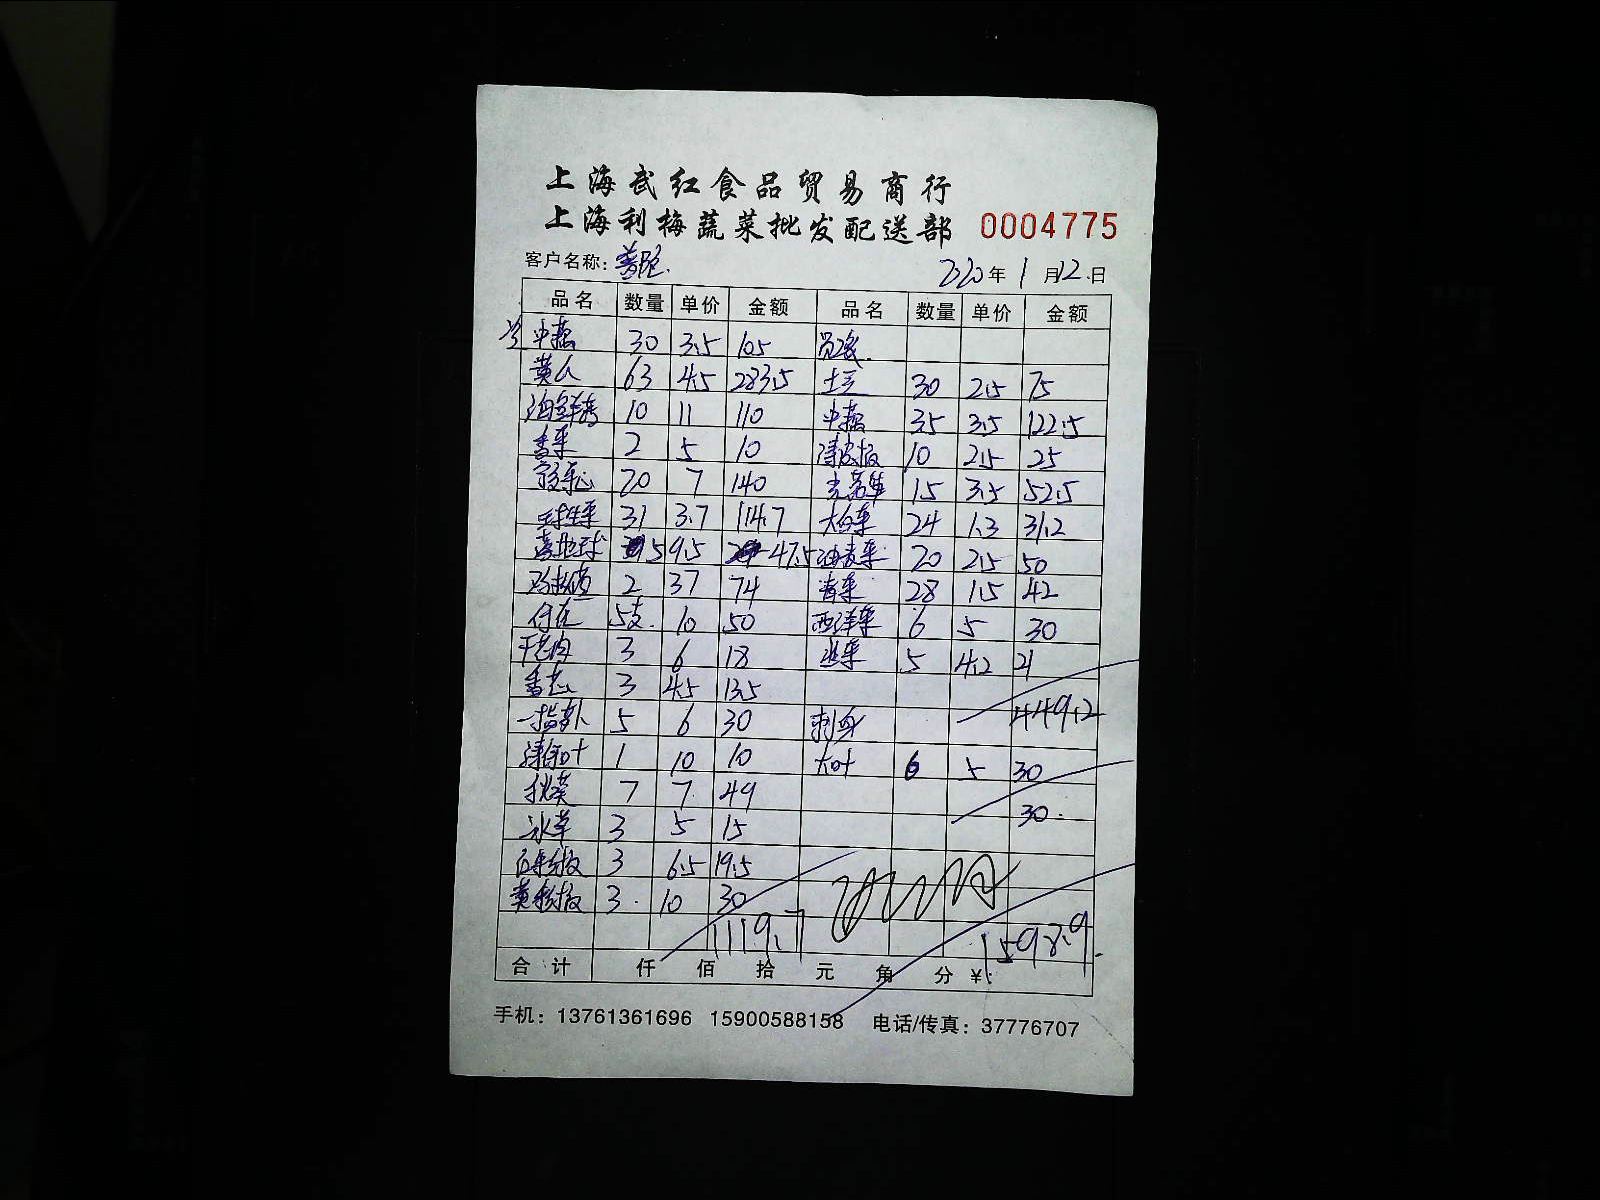 上海武红食品贸易商行
上海利梅蔬菜批发配送部 0004775
客户名称: 2020年1月12日
品名 数量 单价 金额 品名 数量 单价 金额
中藕 30 3.5 105 员工餐
黄瓜 63 4.5 283.5 土豆 30 2.5 75
海鲜菇 10 11 110 中藕 35 3.5 122.5
香菜 2 5 10 10 2.5 25
20 7 140 15 3.5 52.5
球生菜 31 3.7 114.7 大白菜 24 1.3 31.2
5 9.5 47.5 油麦菜 20 2.5 50
2 37 74 青菜 28 1.5 42
5支 10 50 西洋菜 6 5 30
3 6 18 5 4.2 21
3 4.5 13.5 449.2
5 6 30 刺身
1 10 10 大叶 6 5 30
秋葵 7 7 49 30
冰草 3 5 15
3 6.5 19.5
3 10 30
1119.7 1598.9
合计 仟 佰 拾 元 角 分 ¥:
手机: 13761361696 15900588158 电话/传真: 37776707